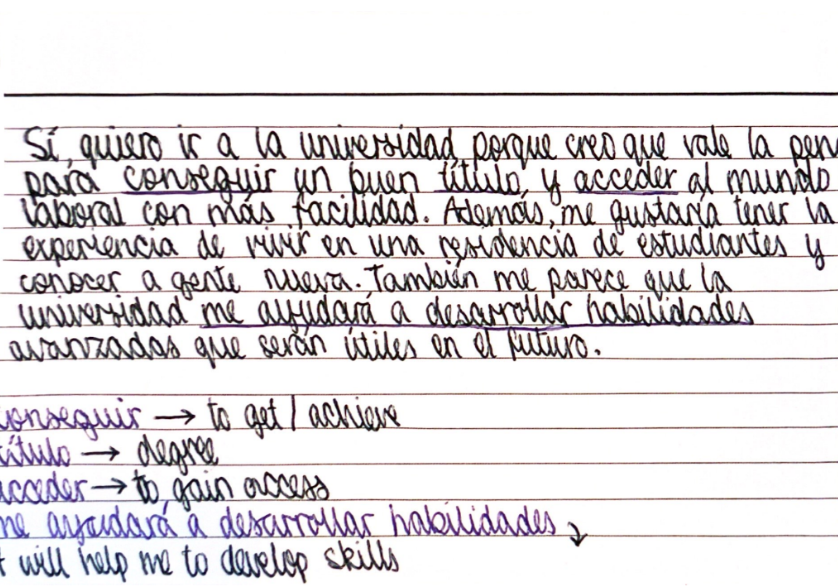 Sí, quiero ir a la universidad porque creo que vale la pen
para conseguir un buen título, y acceder al mundo
laboral con más facilidad. Además, me gustaría tener la
experiencia de vivir en una residencia de estudiantes y
conocer a gente nueva. También me parece que la
universidad me ayudará a desarrollar habilidades
avanzadas que serán útiles en el futuro.
conseguir → to get / achieve
título → degree
acceder → to gain access
me ayudará a desarrollar habilidades ↓
t will help me to develop skills